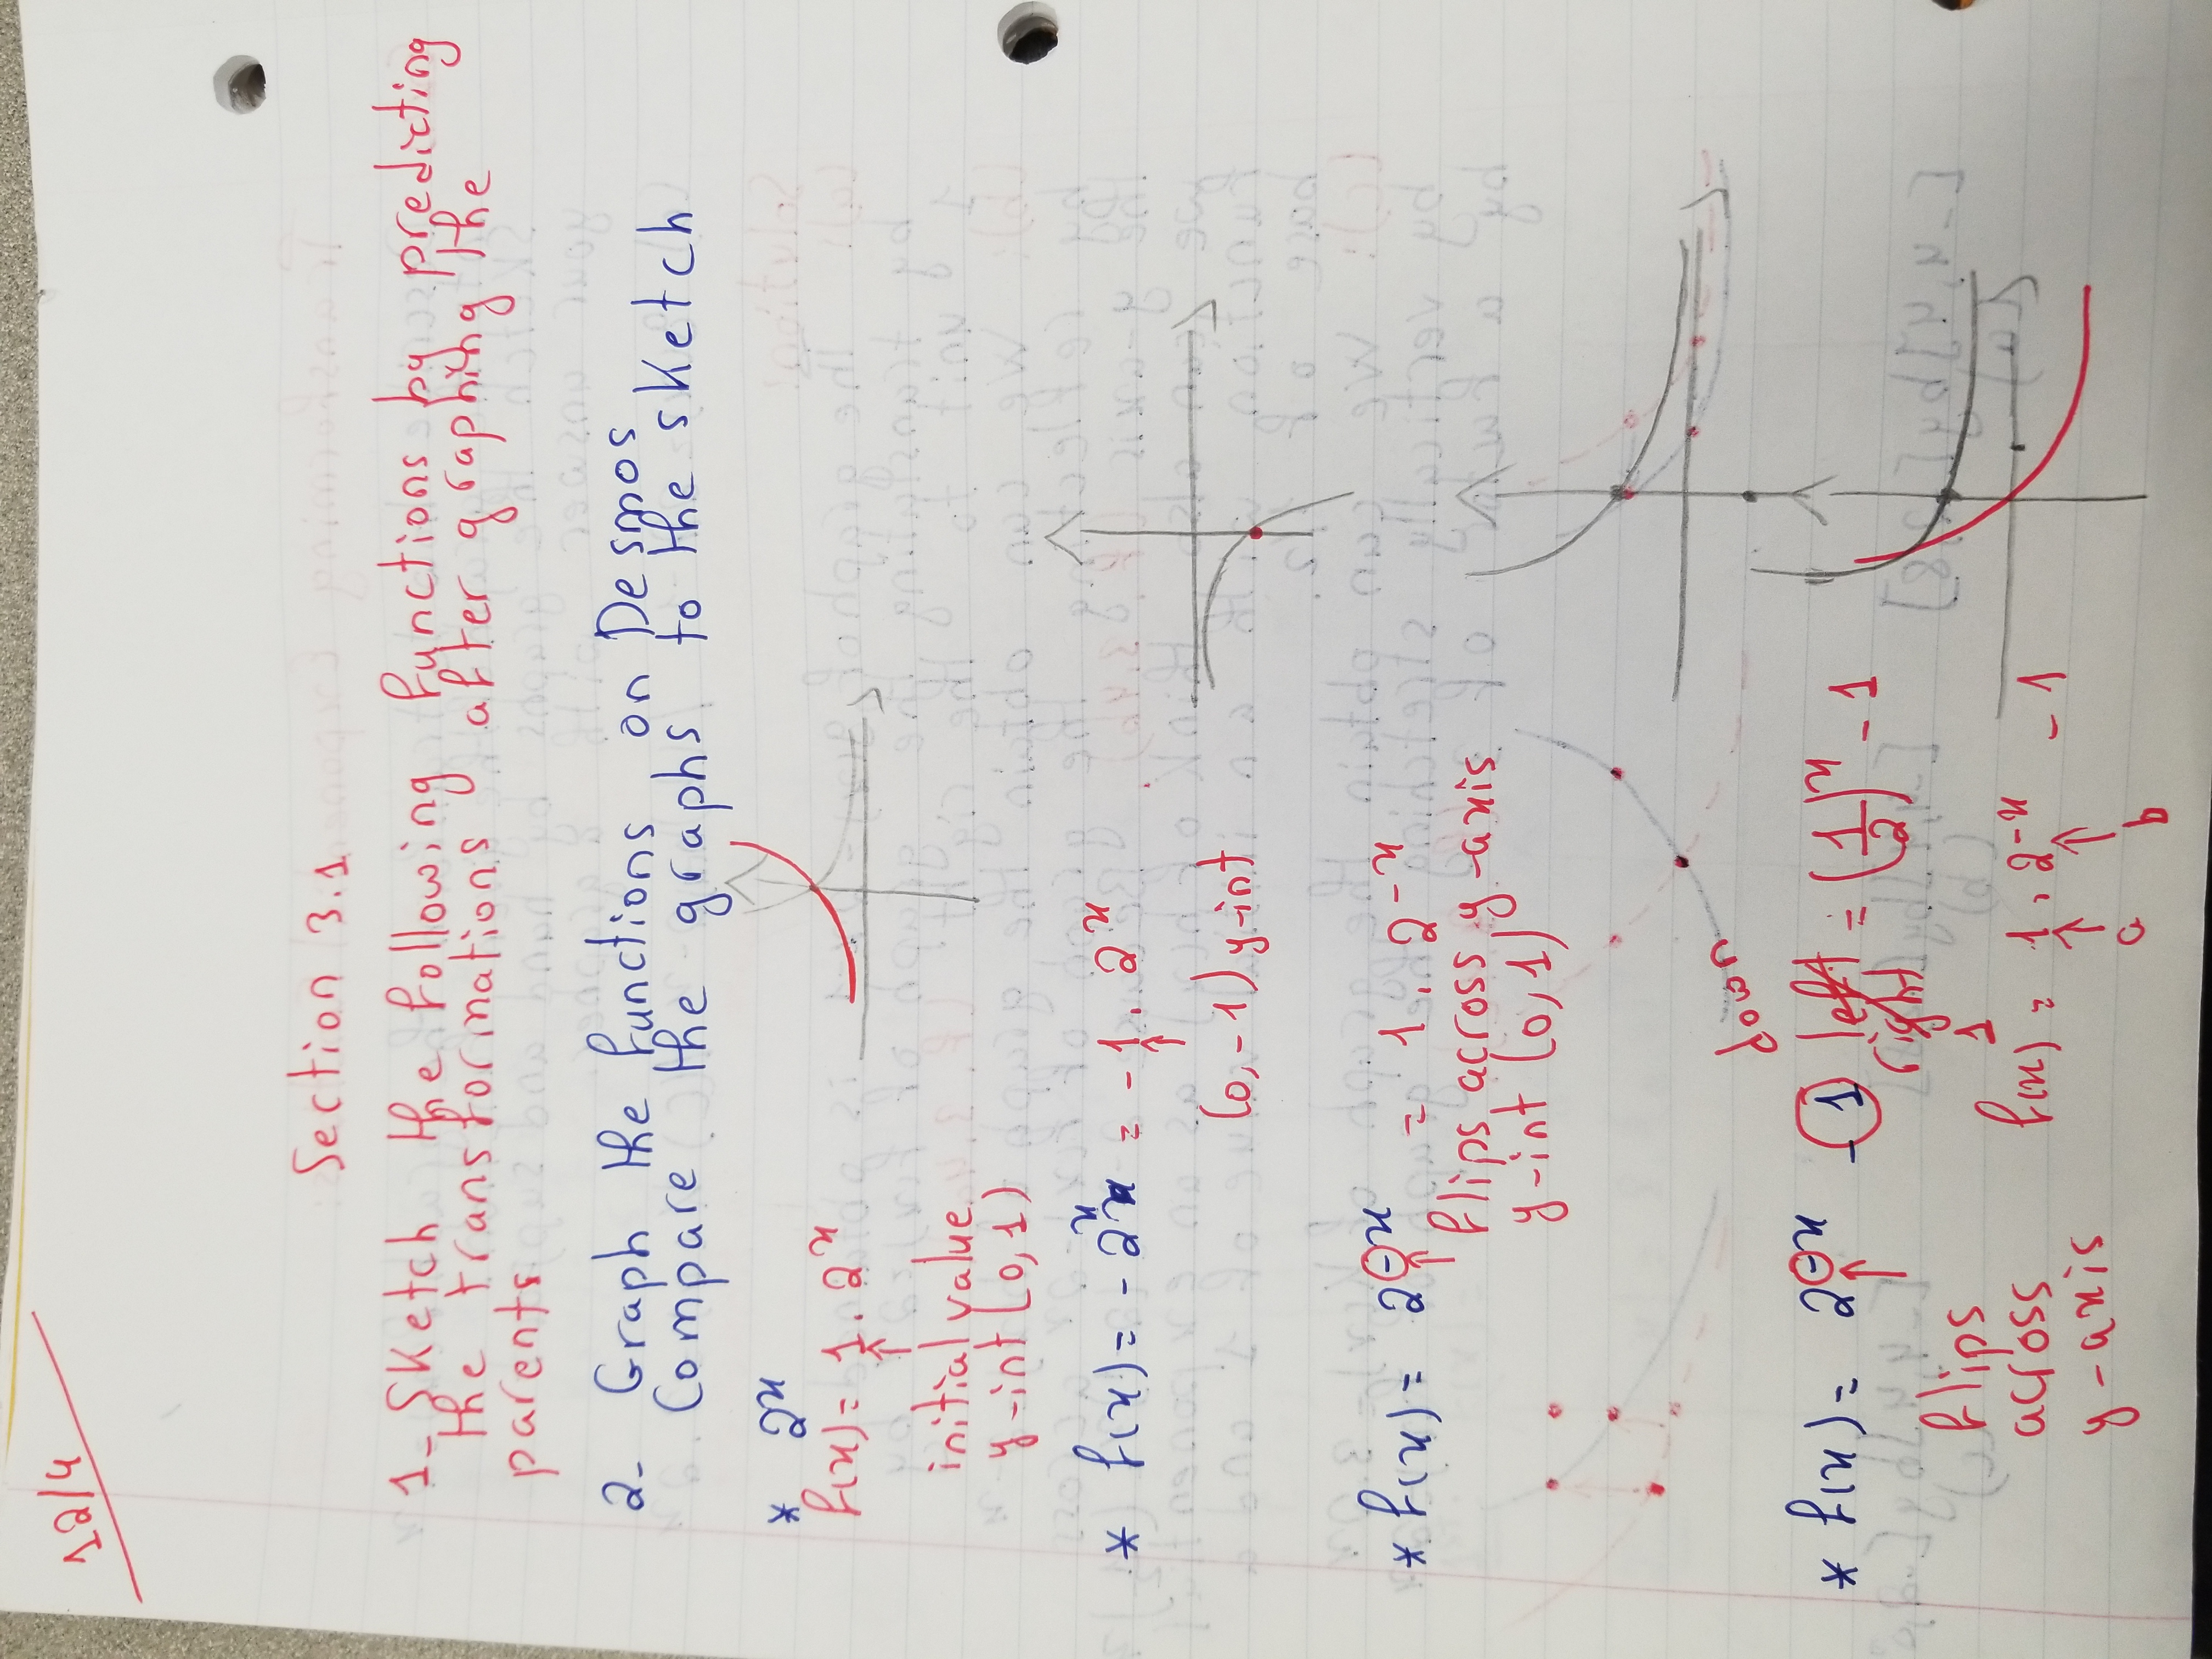 12/4
Section 3.1
1- Sketch the following functions by predicting
the transformations after graphing the
parents
2- Graph the functions on Desmos
Compare the graphs to the sketch
* 2ˣ
f(x) = 1 · 2ˣ
initial value
y-int (0, 1)
* f(x) = - 2ˣ = - 1 · 2ˣ
(0, -1) y-int
* f(x) = 2⁻ˣ = 1 · 2⁻ˣ
flips across y-axis
y-int (0, 1)
* f(x) = 2⁻ˣ - 1 left = (1/2)ˣ - 1
right
1
flips
across
y-axis
f(x) = 1 · 2⁻ˣ - 1
a b